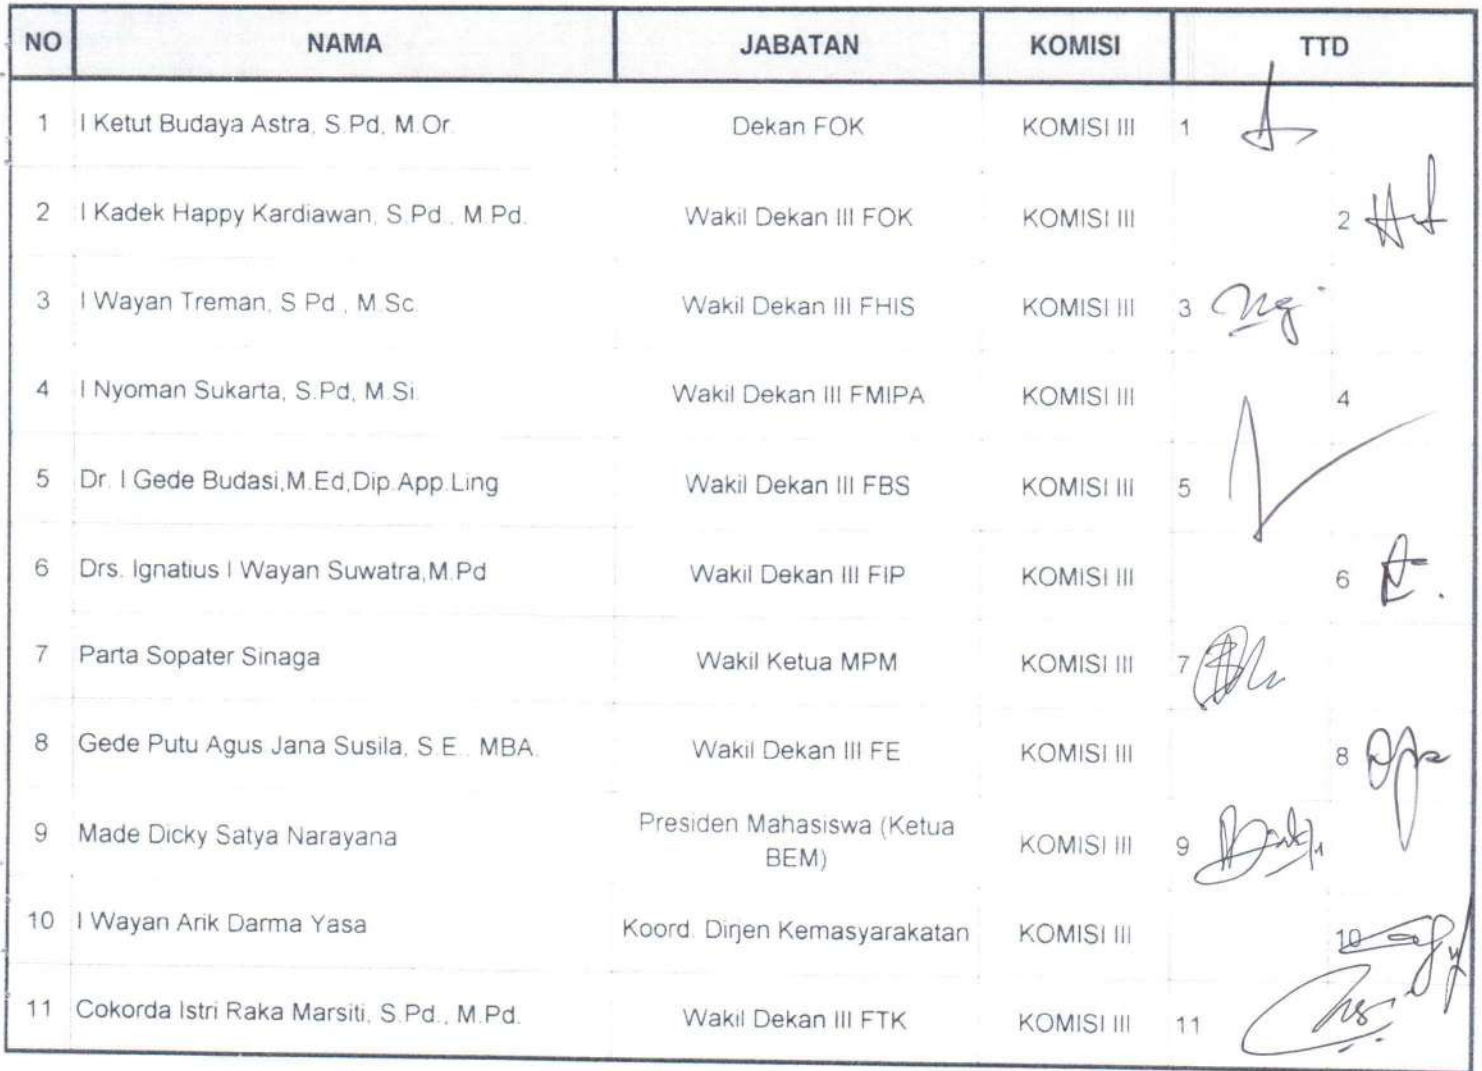 NO NAMA JABATAN KOMISI TTD
1 I Ketut Budaya Astra, S.Pd, M.Or. Dekan FOK KOMISI III 1
2 I Kadek Happy Kardiawan, S.Pd., M.Pd. Wakil Dekan III FOK KOMISI III 2
3 I Wayan Treman, S.Pd., M.Sc. Wakil Dekan III FHIS KOMISI III 3
4 I Nyoman Sukarta, S.Pd, M.Si. Wakil Dekan III FMIPA KOMISI III 4
5 Dr. I Gede Budasi,M.Ed,Dip.App.Ling Wakil Dekan III FBS KOMISI III 5
6 Drs. Ignatius I Wayan Suwatra,M.Pd Wakil Dekan III FIP KOMISI III 6
7 Parta Sopater Sinaga Wakil Ketua MPM KOMISI III 7
8 Gede Putu Agus Jana Susila, S.E., MBA. Wakil Dekan III FE KOMISI III 8
9 Made Dicky Satya Narayana Presiden Mahasiswa (Ketua KOMISI III 9
BEM)
10 I Wayan Arik Darma Yasa Koord. Dirjen Kemasyarakatan KOMISI III 10
11 Cokorda Istri Raka Marsiti, S.Pd., M.Pd. Wakil Dekan III FTK KOMISI III 11